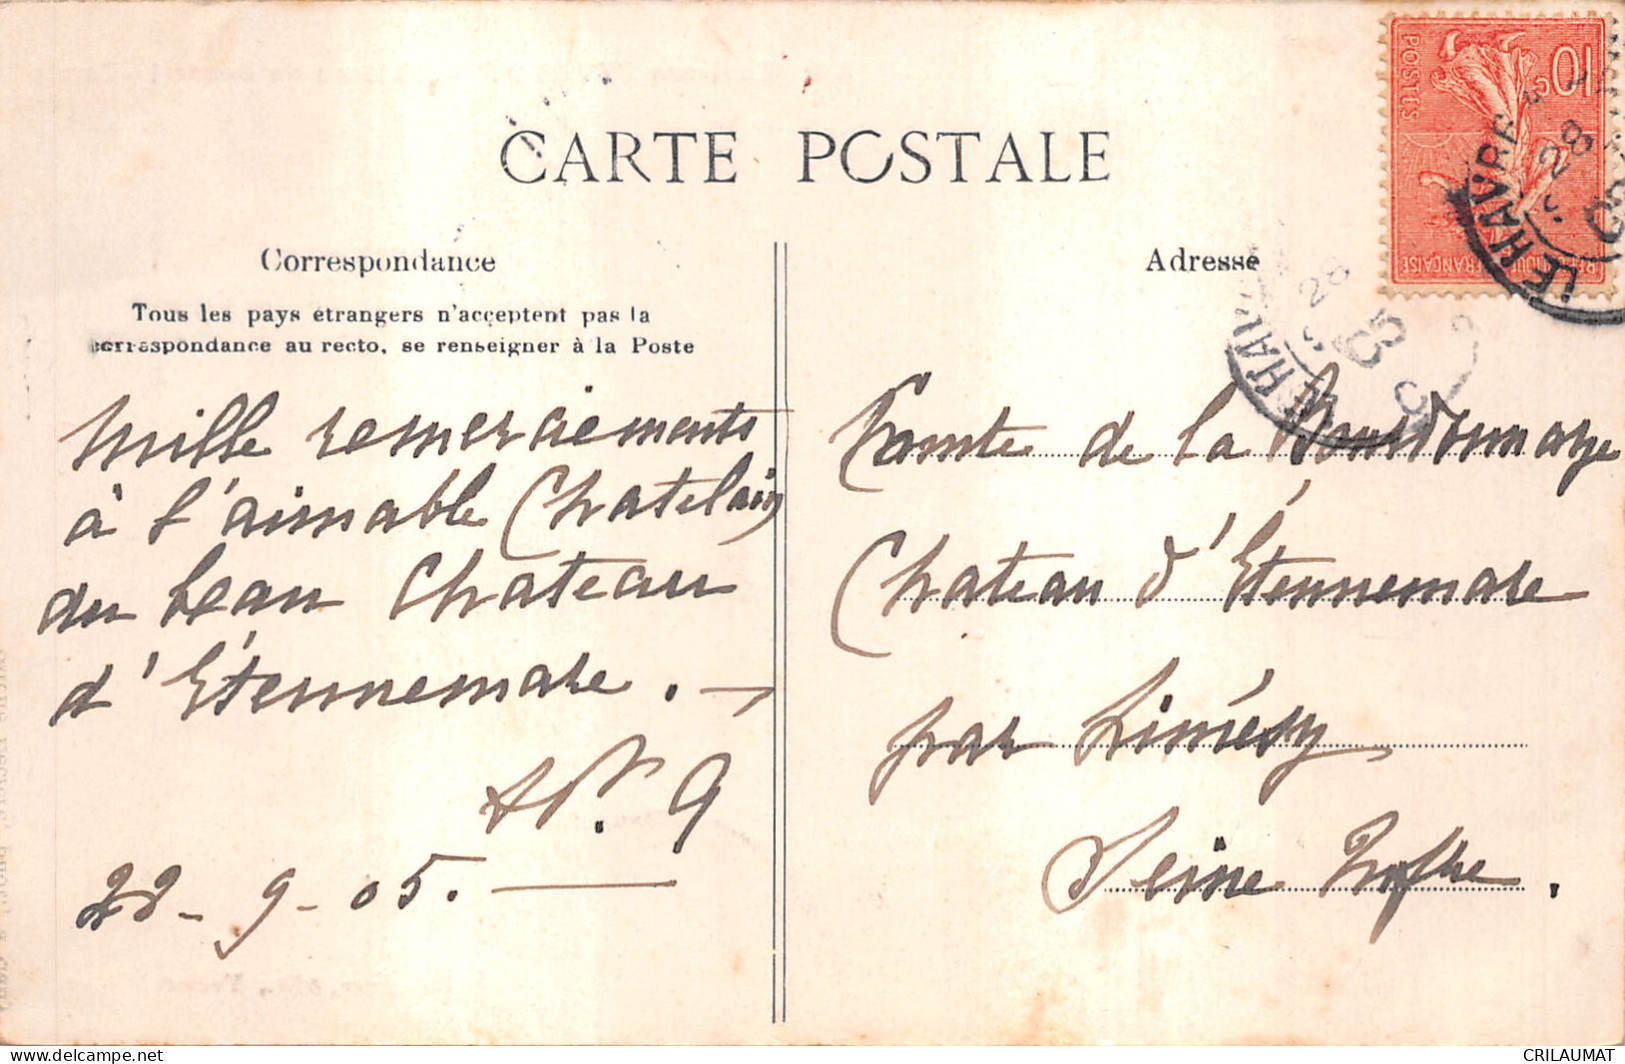 CARTE POSTALE
Correspondance
Tous les pays étrangers n'acceptent pas la
correspondance au recto, se renseigner à la Poste
Mille remerciements
à l'aimable Chatelain
du beau Chateau
d'Étennemare. —
22 - 9 - 05.
Adresse
Comte de la Bourdonnaye
Chateau d'Étennemare
par Limésy
Seine Infre.
10c
POSTES
RÉPUBLIQUE FRANÇAISE
LE HAVRE
28
05
LE HAVRE
28
05
www.delcampe.net
CRILAUMAT